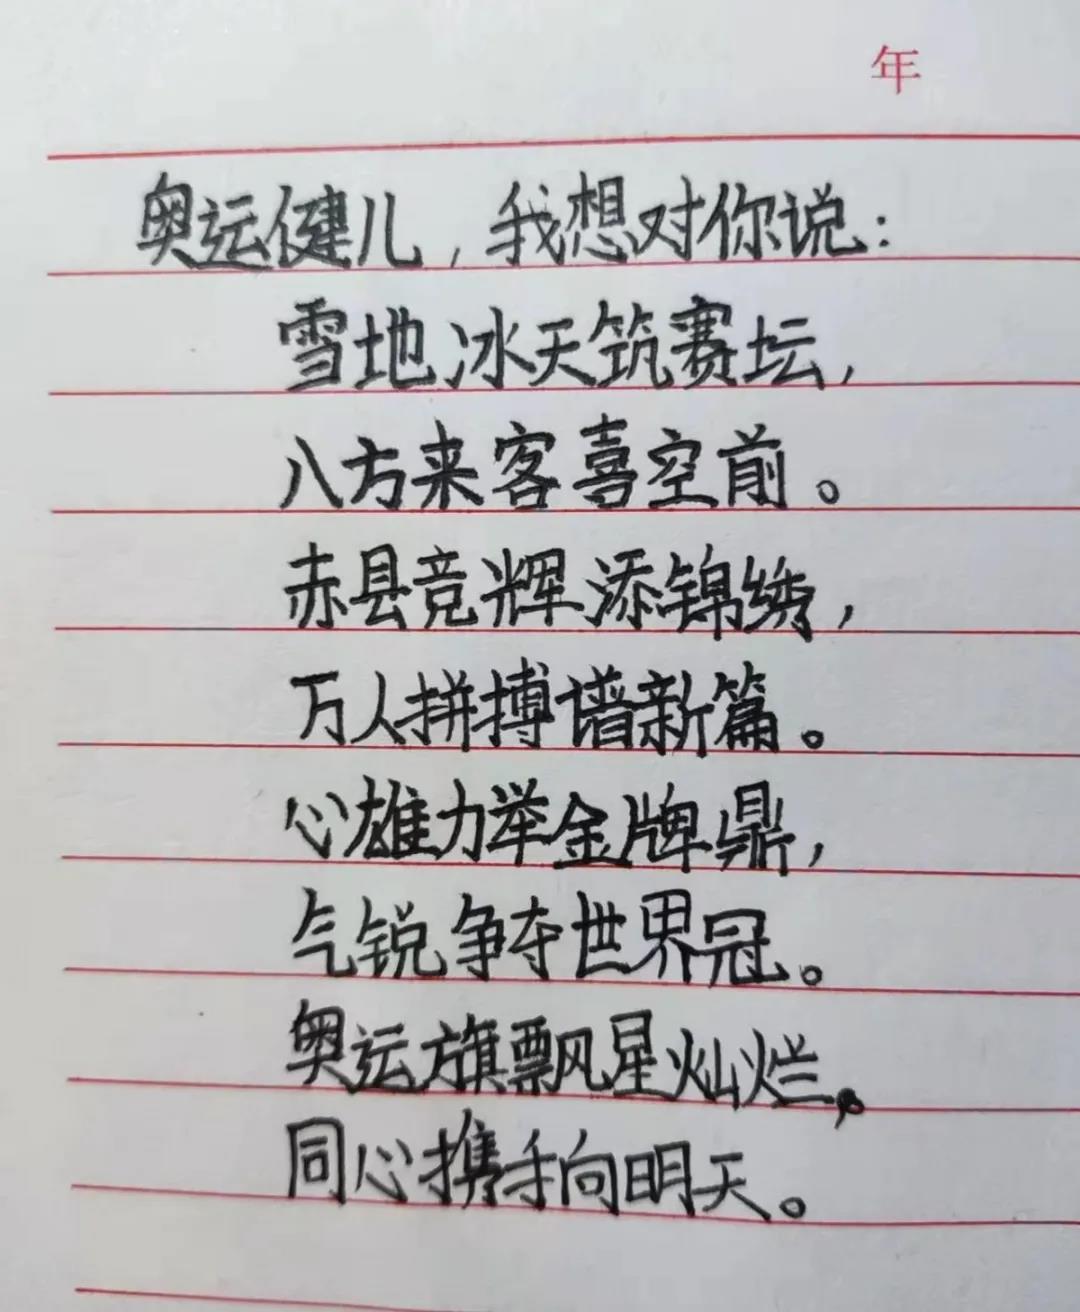 年
奥运健儿，我想对你说：
雪地冰天筑赛坛，
八方来客喜空前。
赤县竞辉添锦绣，
万人拼搏谱新篇。
心雄力举金牌鼎，
气锐争夺世界冠。
奥运旗飘风星灿烂，
同心携手向明天。